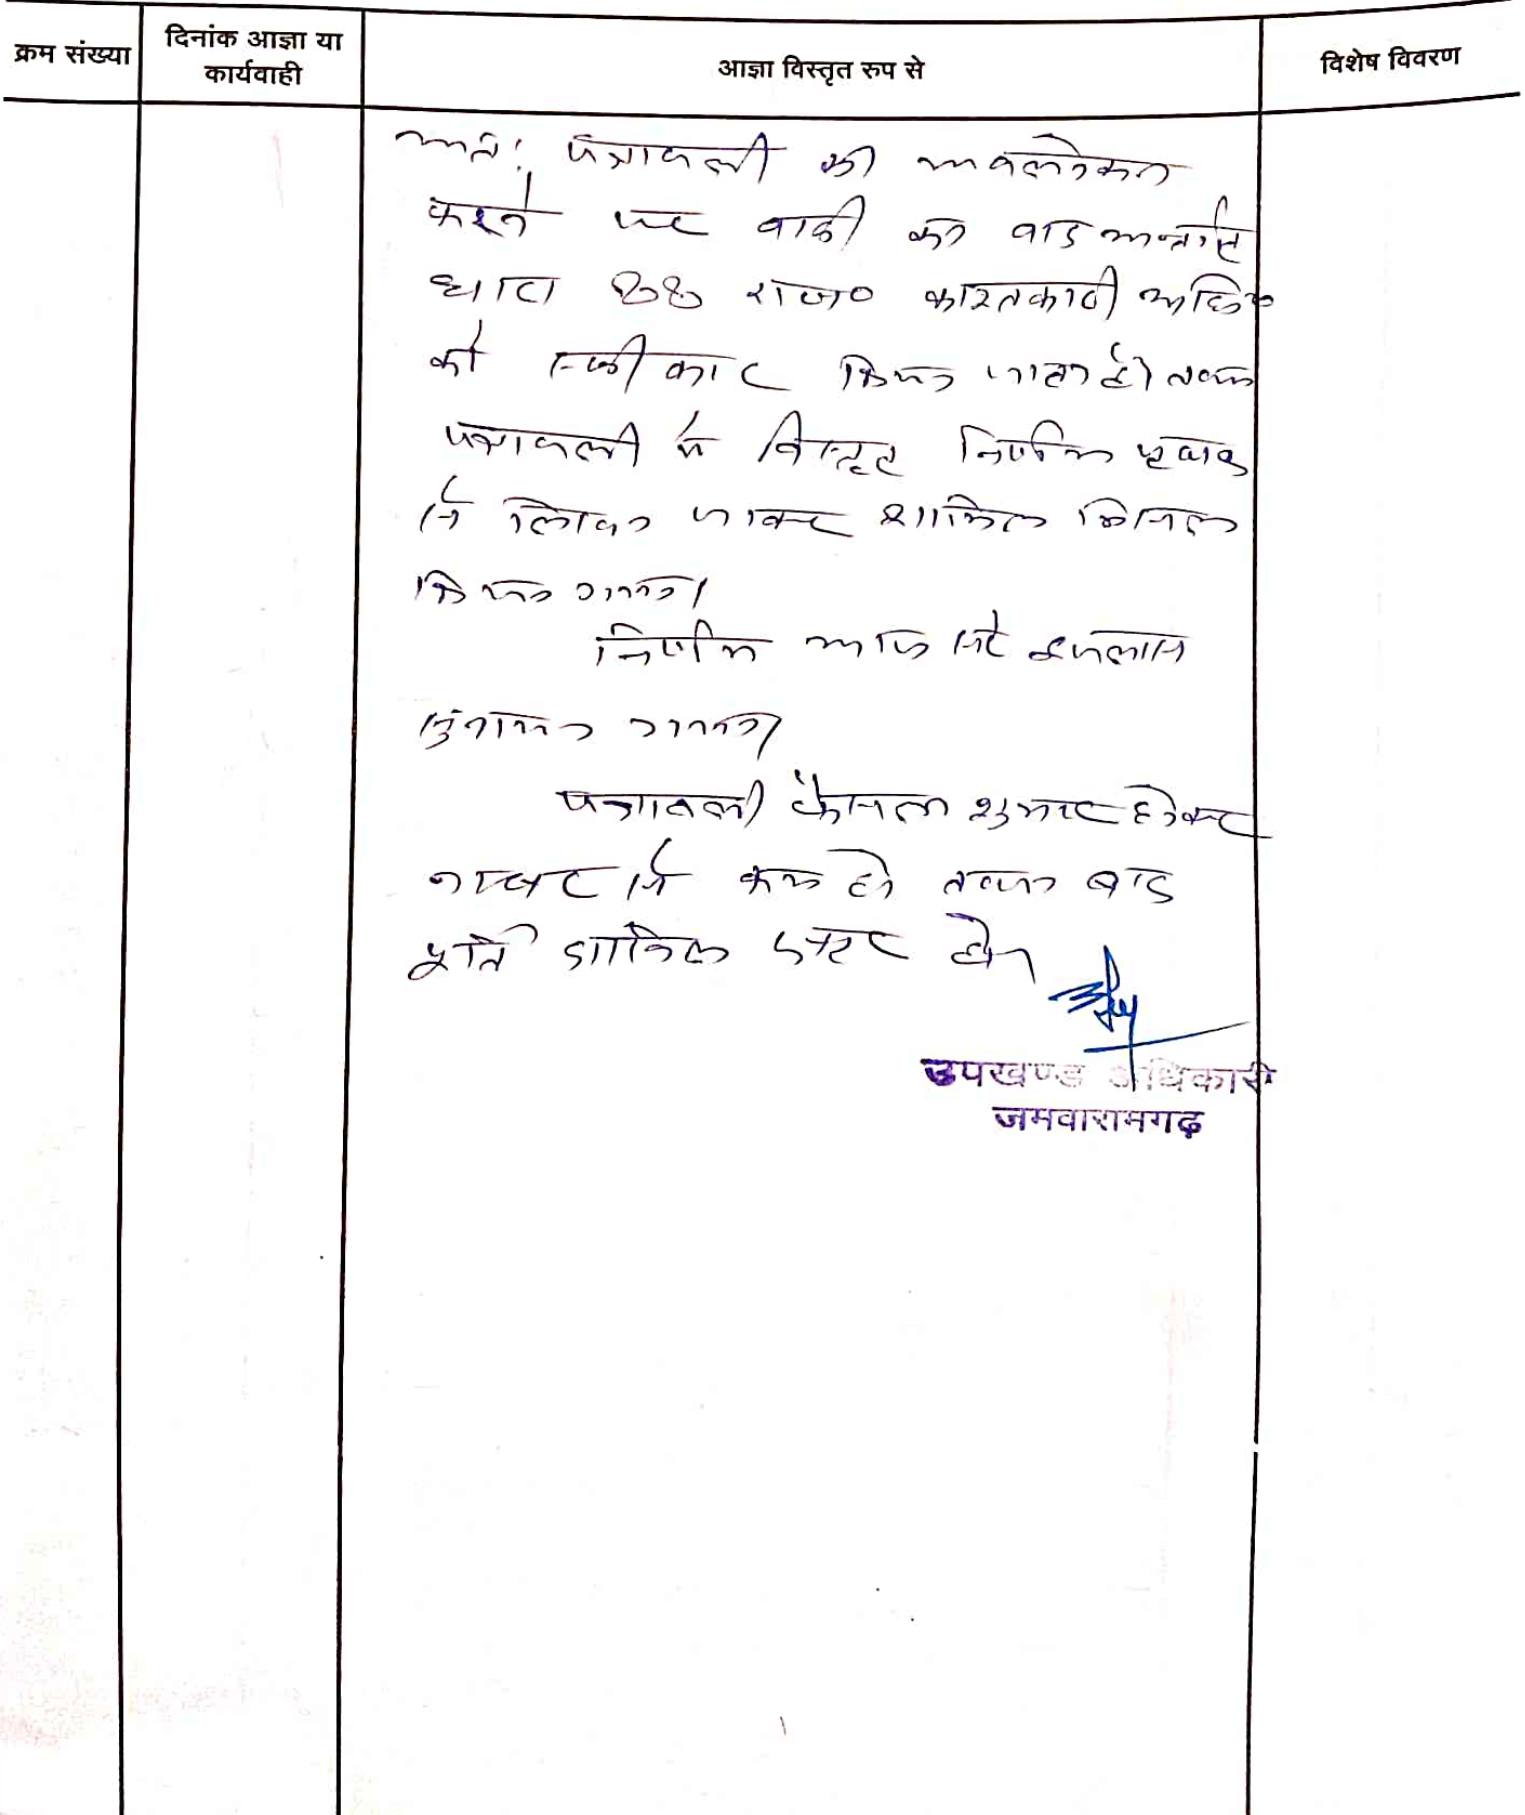 क्रम संख्या
दिनांक आज्ञा या
कार्यवाही
आज्ञा विस्तृत रुप से
विशेष विवरण
अतः पत्रावली का अवलोकन
करने पर वादी का वाद अन्तर्गत
धारा 88 राज० काश्तकारी अधि०
को स्वीकार किया जाता है। तथा
पत्रावली में विस्तृत निर्णय पृथक
से लिखा जाकर शामिल मिसल
किया गया।
निर्णय आज सरे इजलास
सुनाया गया।
पत्रावली फैसल शुमार होकर
नम्बर से कम हो तथा बाद
पूर्ति दाखिल दफ्तर हो।
उपखण्ड अधिकारी
जमवारामगढ़